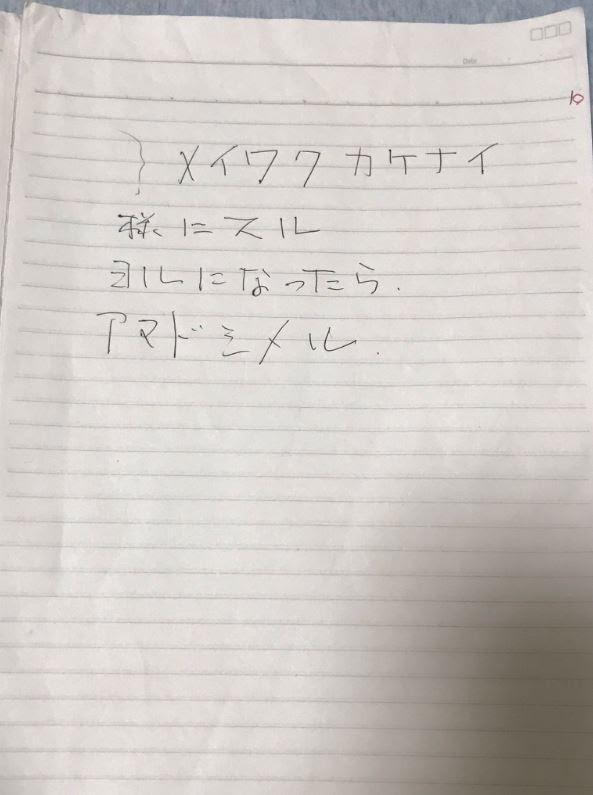 Date
10
} メイワクカケナイ
様ニスル
ヨルになったら.
アマドシメル.